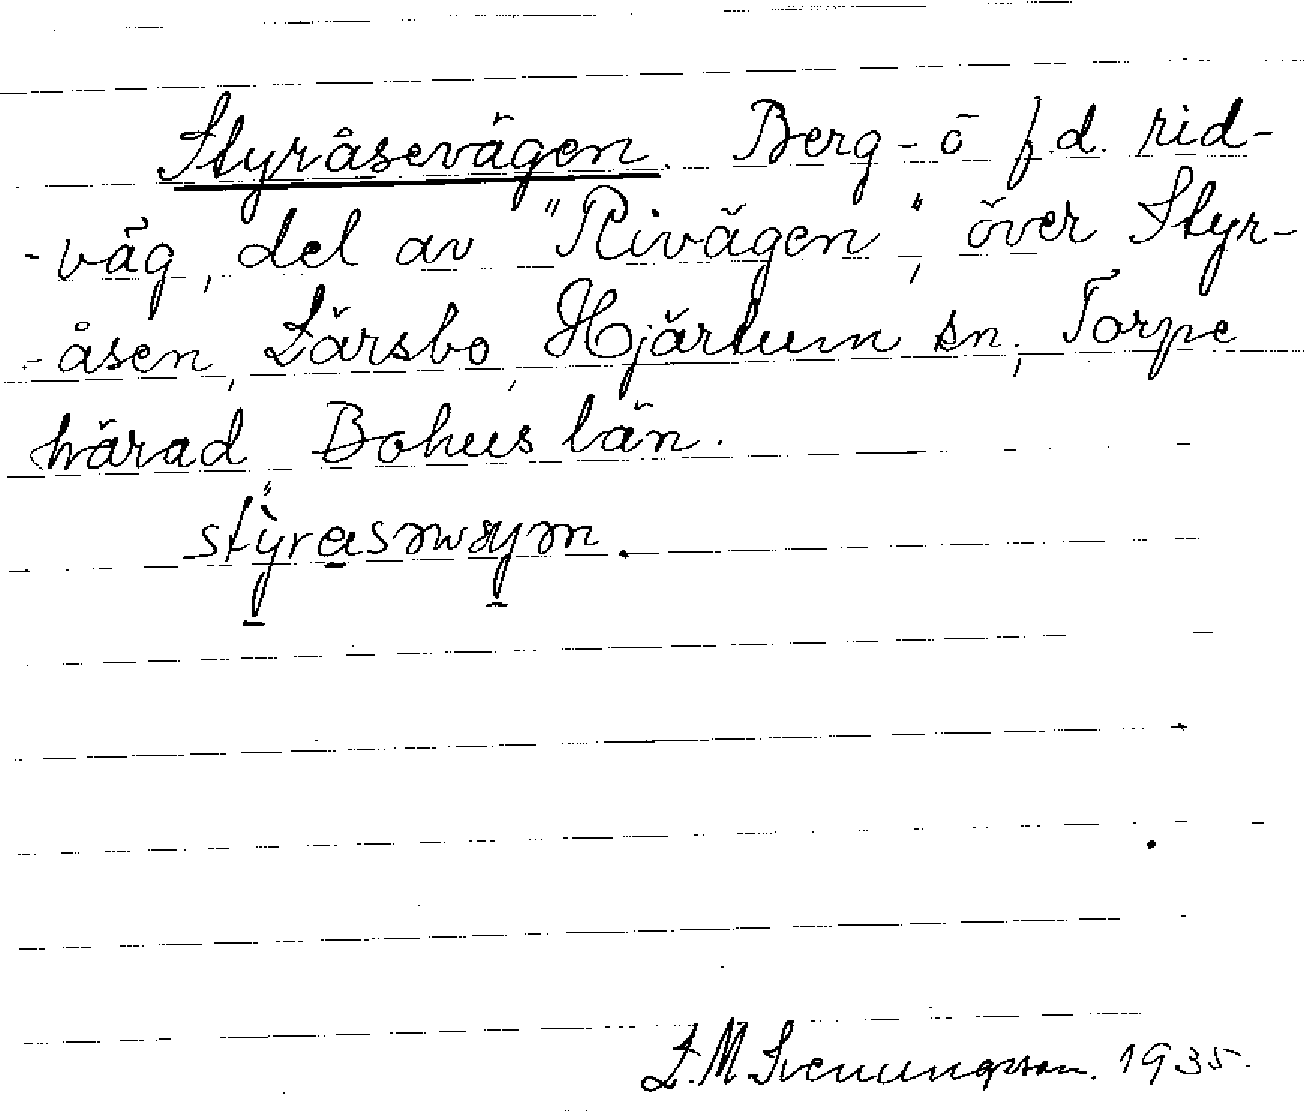 Styråsevägen. Berg- o f.d. rid-
-väg, del av "Rivägen", över Styr-
-åsen, Lärsbo, Hjärtum sn, Torpe
härad Bohus län.
L.M. Svenungsson. 1935.